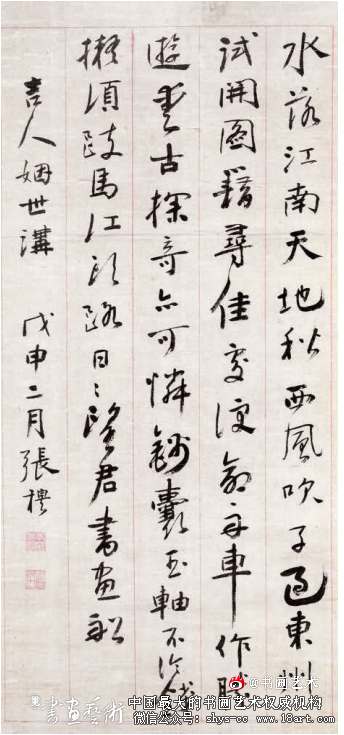 水落江南天地秋西風吹子過東州
試開圖籍尋佳處便命舟車作勝
遊愛古探奇亦可憐錦囊玉軸不論錢
擬須跋馬江頭路日〻君書畫船
吉人姻世講 戊申二月張
@书画艺术
書画藝術
中国最大的书画艺术权威机构
微信公众号：shys-cc www.18art.com